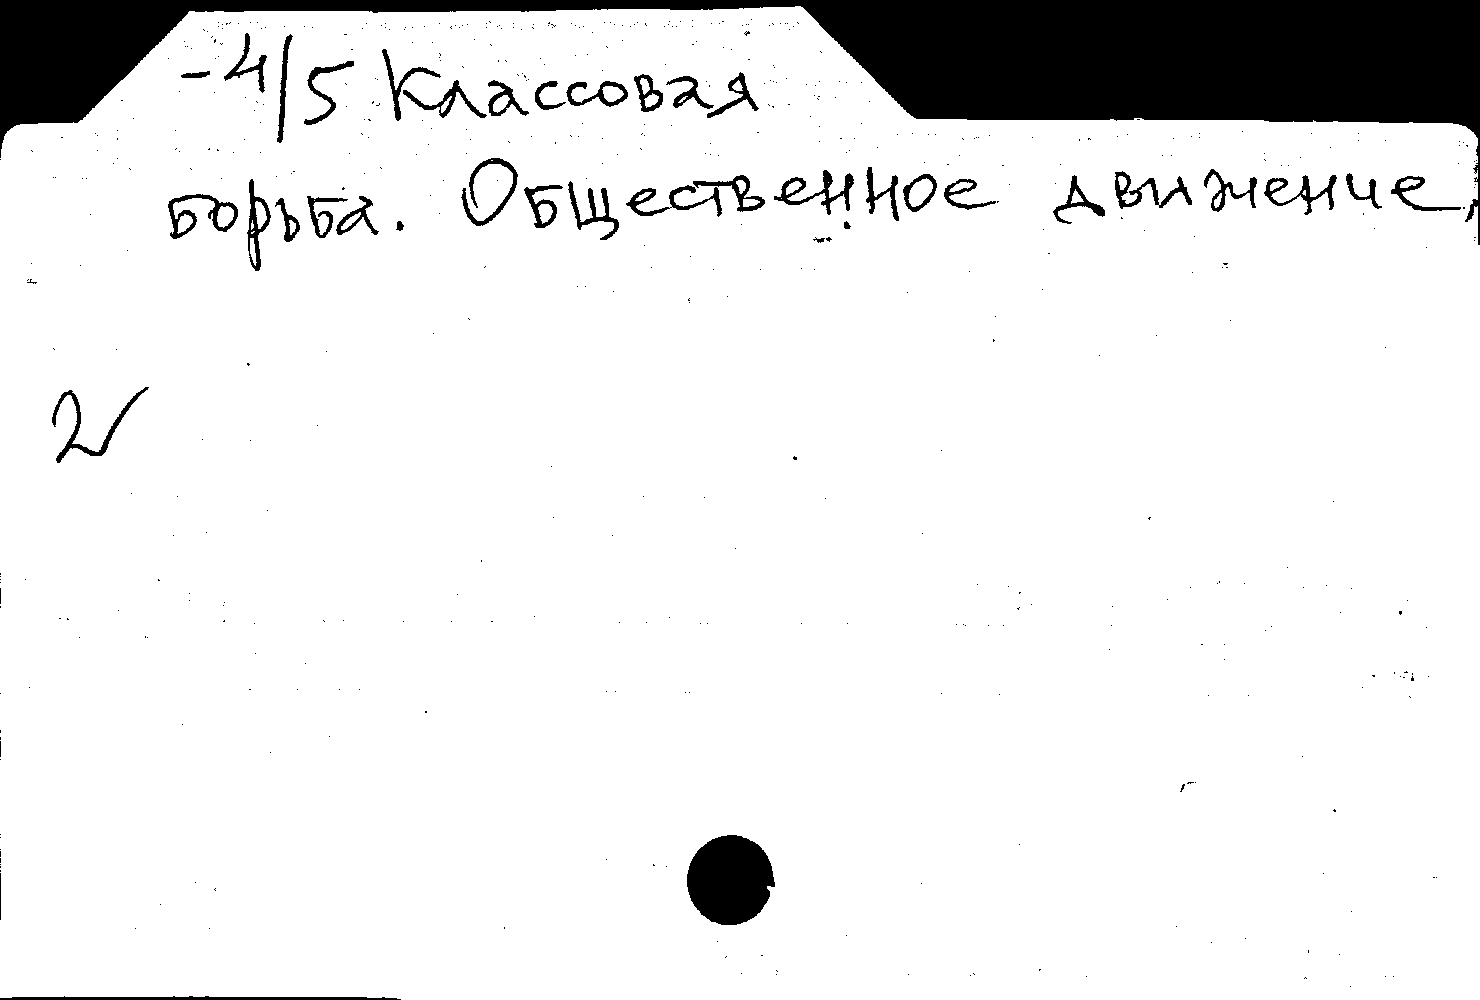 -4/5 Классовая
борьба. Общественное движение,
2